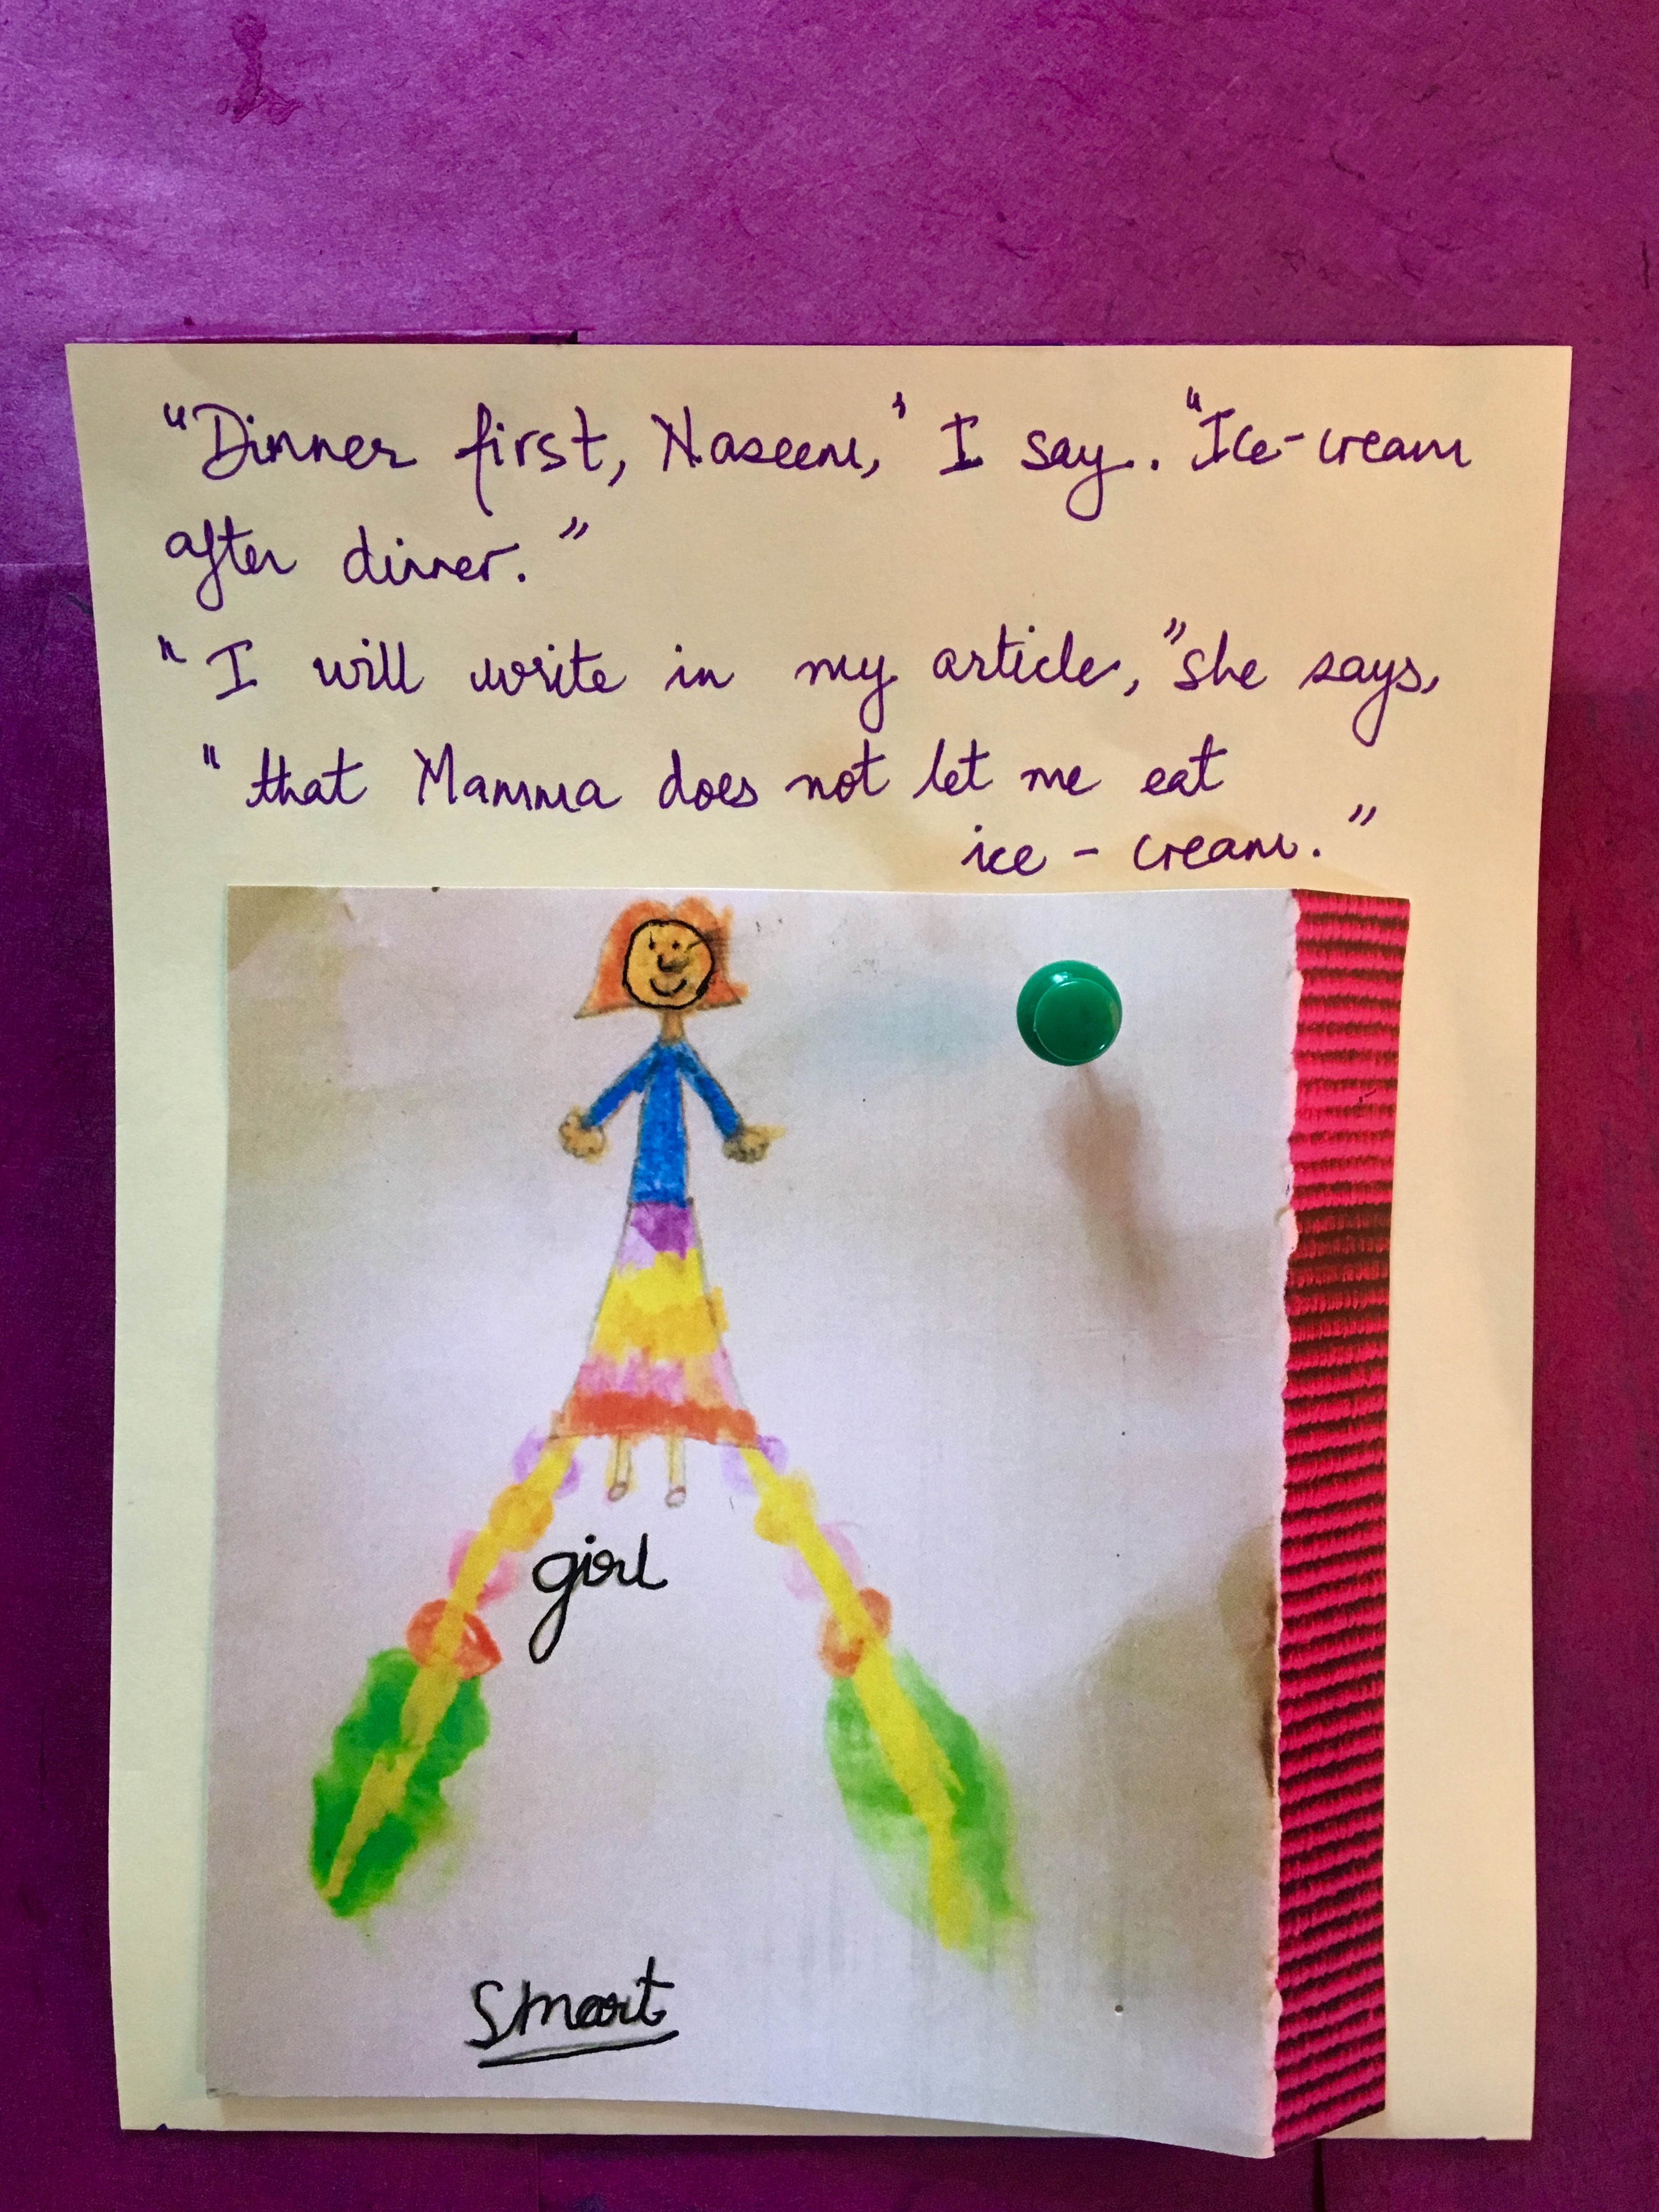 "Dinner first, Naseem,' I say. "Ice-cream
after dinner."
"I will write in my article," she says,
"that Mamma does not let me eat
ice - cream."
girl
Smart